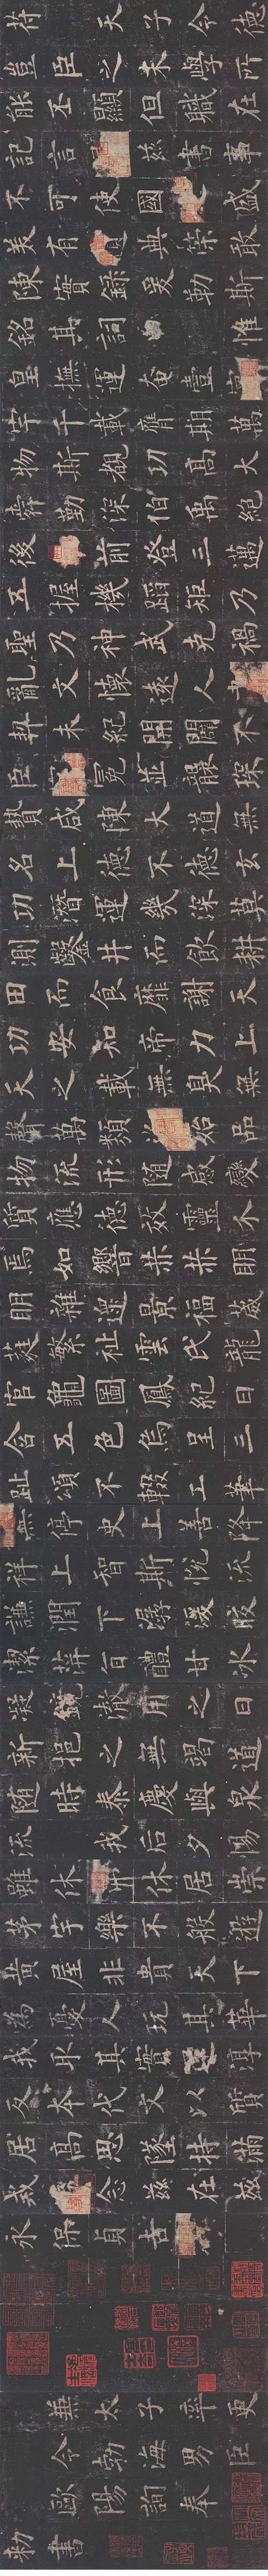 符天子令德
豈臣之末學所
能丕顯但職在
記言兹書事
不可使國盛
美有典策敢
陳實錄爰勒斯
銘其詞惟
皇撫運奄壹
宇千載膺期萬
物斯覩功高大
舜勤深伯禹絕
後前登三邁
五握機蹈矩乃
聖乃神武克禍
亂文懷遠人
契未紀開闢不
臣冕並襲琛
贄咸陳大道無
名上德不德玄
功潛運幾深莫
測鑿井而飲耕
田而食靡謝天
功安知帝力上
天之載無臭無
聲萬類資始品
物流形隨感變
質應德效靈介
焉如響赫赫明
明雜遝景福葳
蕤繁祉雲氏龍
官龜圖鳳紀日
含五色烏呈三
趾頌不輟工筆
無停史上善降
祥上智斯悅流
謙潤下潺湲皎
潔萍旨醴甘冰
凝鏡澈用之日
新挹之無竭道
隨時泰慶與泉
流我后夕惕
雖休弗休居崇
茅宇樂不般遊
黃屋非貴天下
為憂人玩其華
我取其實還淳
反本代文以質
居高思墜持滿
戒念兹在兹
永保貞吉
兼太子率更
令勃海男臣
歐陽詢奉
勑書